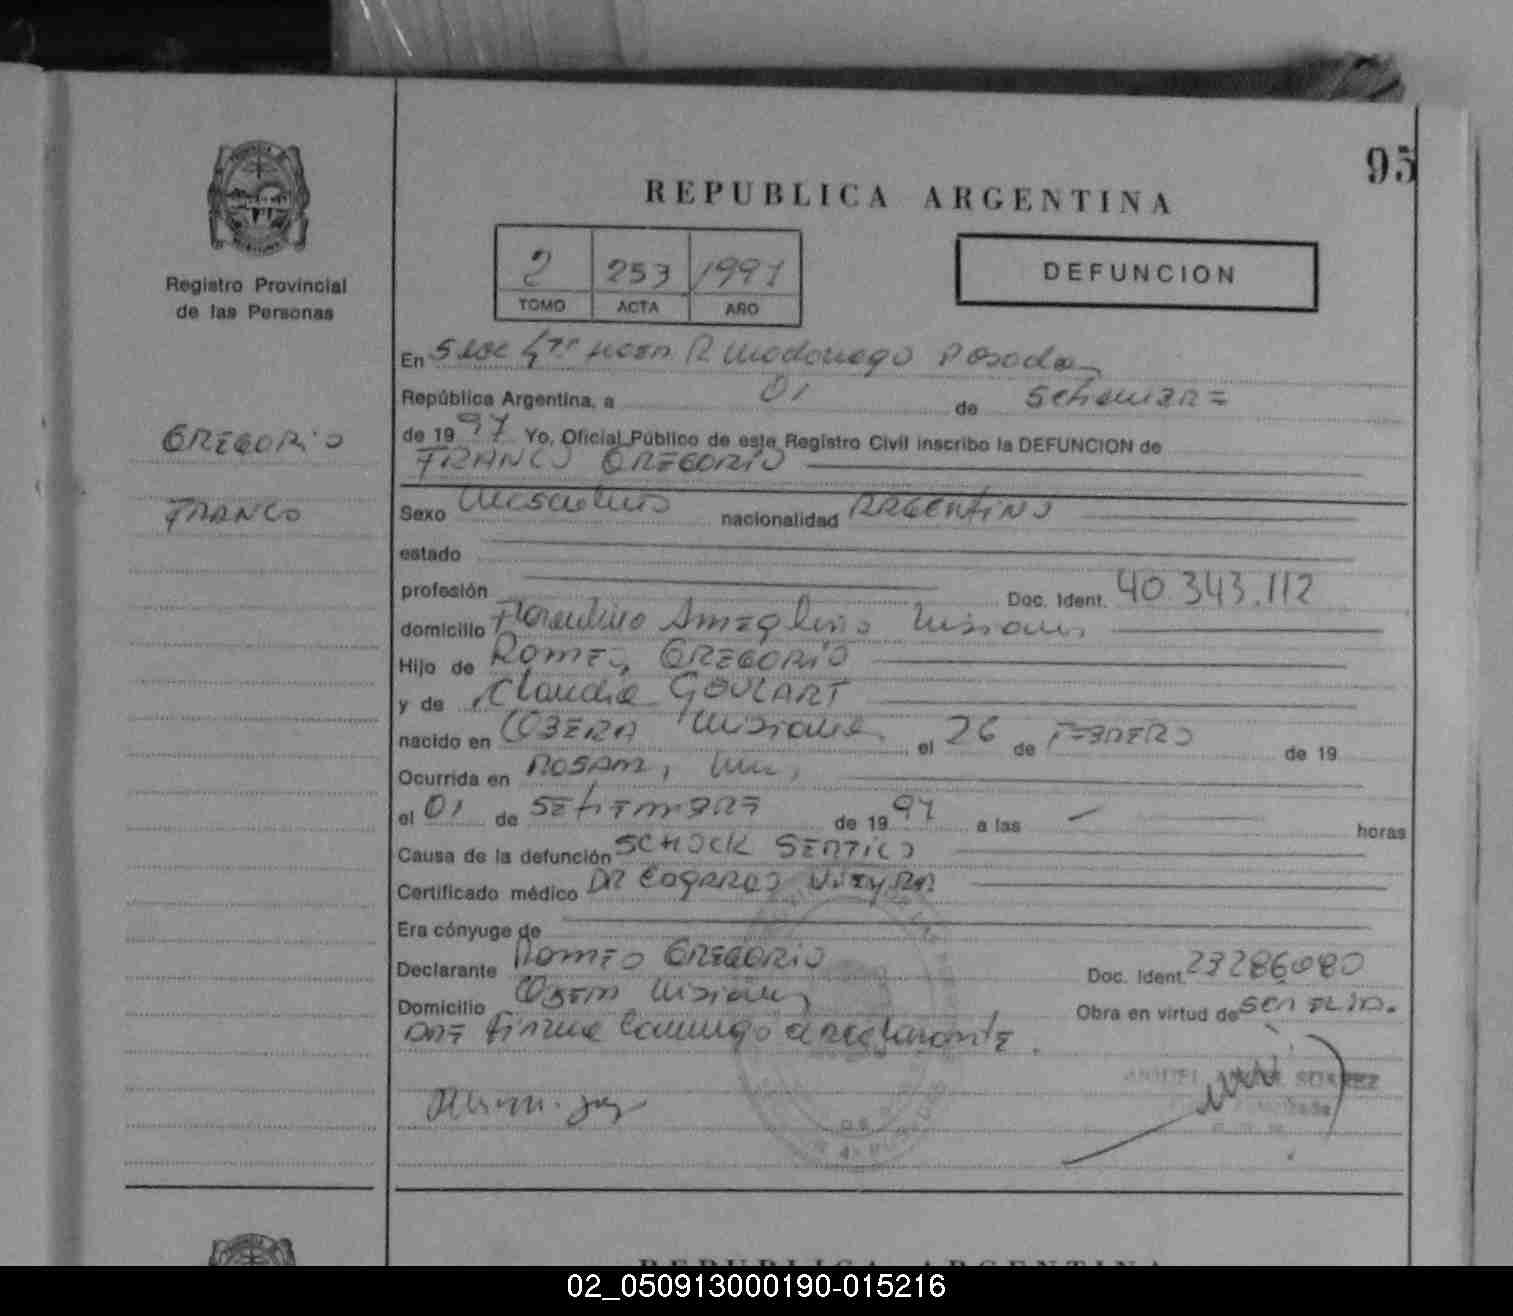 95
REPUBLICA ARGENTINA
2 253 1997
TOMO ACTA AÑO
DEFUNCION
Registro Provincial
de las Personas
En Posadas
República Argentina, a 01 de Setiembre
de 1997 Yo, Oficial Público de este Registro Civil inscribo la DEFUNCION de
FRANCO GREGORIO
GREGORIO
FRANCO
Sexo Masculino nacionalidad ARGENTINO
estado
profesión Doc. Ident. 40.343.112
domicilio Florentino Ameghino Misiones
Hijo de ROMEO GREGORIO
y de Claudia GOULART
nacido en OBERA Misiones el 26 de FEBRERO de 19
Ocurrida en
el 01 de SETIEMBRE de 1997 a las — horas
Causa de la defunción SCHOCK SEPTICO
Certificado médico DR
Era cónyuge de
Declarante ROMEO GREGORIO Doc. Ident. 23286080
Domicilio Misiones Obra en virtud de
firma conmigo declarante.
SUAREZ
REPUBLICA ARGENTINA
02_050913000190-015216